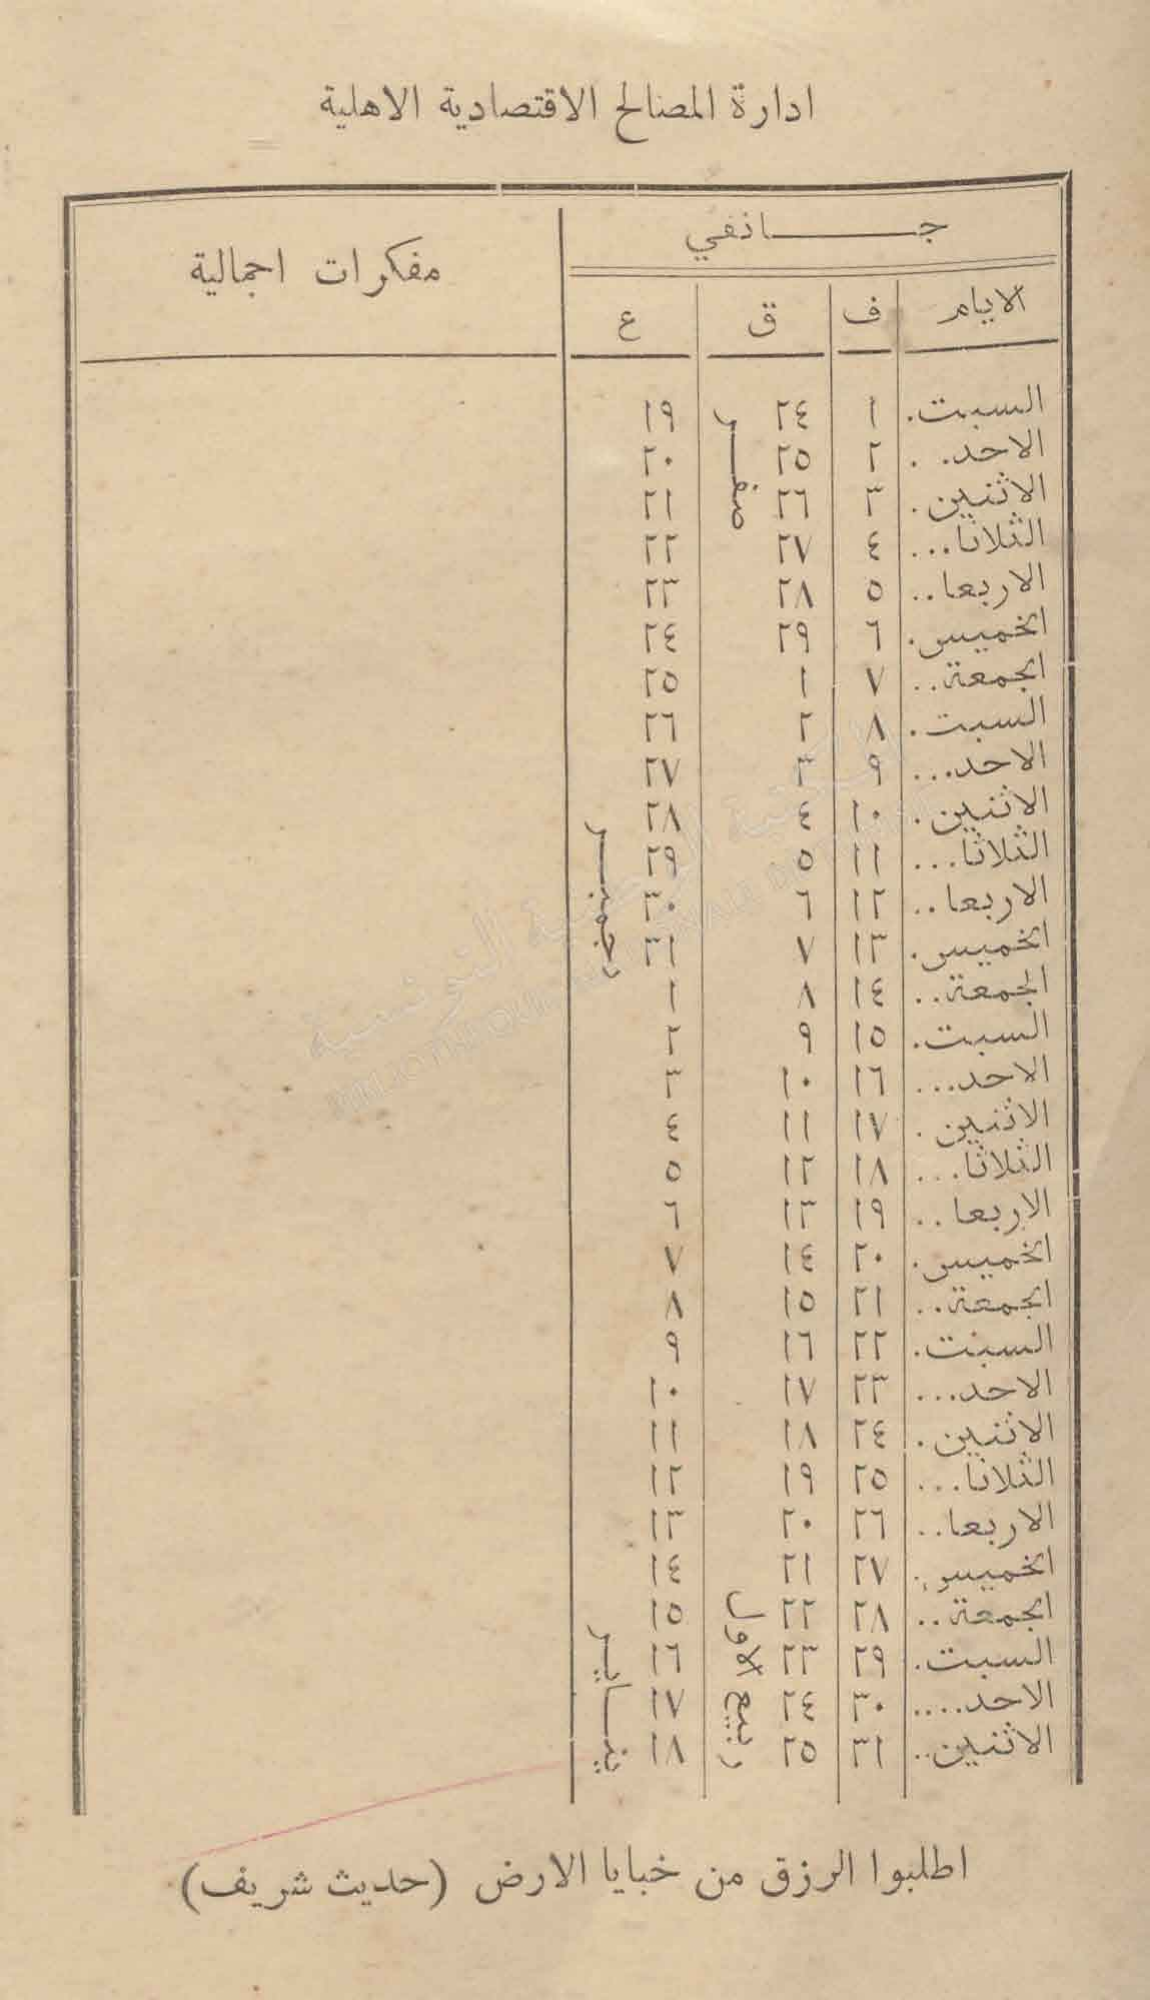 ادارة المصالح الاقتصادية الاهلية
جانفي
مفكرات اجمالية
الايام ف ق ع
السبت. ١ ٢٤ ١٩
الاحد. . ٢ ٢٥ ٢٠
الاثنين. ٣ ٢٦ ٢١
الثلاثا... ٤ ٢٧ ٢٢
الاربعا.. ٥ ٢٨ ٢٣
الخميس. ٦ ٢٩ ٢٤
الجمعة.. ٧ ١ ٢٥
السبت. ٨ ٢ ٢٦
الاحد... ٩ ٣ ٢٧
الاثنين. ١٠ ٤ ٢٨
الثلاثا... ١١ ٥ ٢٩
الاربعا.. ١٢ ٦ ٣٠
الخميس. ١٣ ٧ ٣١
الجمعة.. ١٤ ٨ ١
السبت. ١٥ ٩ ٢
الاحد... ١٦ ١٠ ٣
الاثنين. ١٧ ١١ ٤
الثلاثا... ١٨ ١٢ ٥
الاربعا.. ١٩ ١٣ ٦
الخميس. ٢٠ ١٤ ٧
الجمعة.. ٢١ ١٥ ٨
السبت. ٢٢ ١٦ ٩
الاحد... ٢٣ ١٧ ١٠
الاثنين. ٢٤ ١٨ ١١
الثلاثا... ٢٥ ١٩ ١٢
الاربعا.. ٢٦ ٢٠ ١٣
الخميس. ٢٧ ٢١ ١٤
الجمعة.. ٢٨ ٢٢ ١٥
السبت. ٢٩ ٢٣ ١٦
الاحد.... ٣٠ ٢٤ ١٧
الاثنين.. ٣١ ٢٥ ١٨
صفر
ربيع الاول
دجمبر
يناير
اطلبوا الرزق من خبايا الارض (حديث شريف)